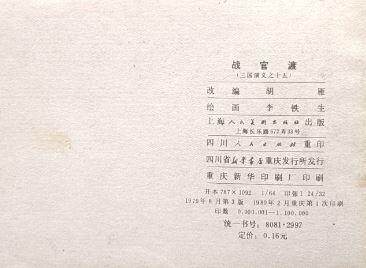 战官渡
(三国演义之十五)
改编 胡雁
绘画 李铁生
上海人民美术出版社出版
上海长乐路672弄33号
四川人民出版社重印
四川省新华书店重庆发行所发行
重庆新华印刷厂印刷
开本787×1092 1/64 印张1 24/32
1979年8月第3版 1980年2月重庆第1次印刷
印数 0,001,001—1,100,000
统一书号:8081·2997
定价:0.16元